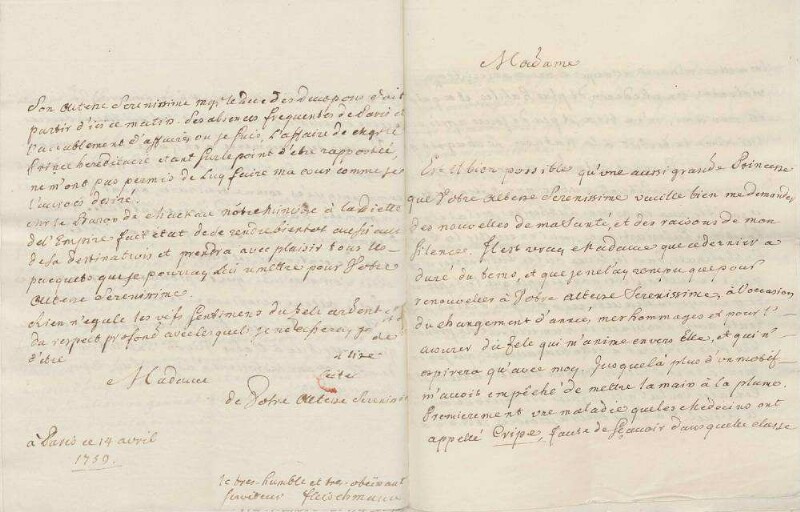 Son Altesse Serenissime Mgr. le Duc des Deuxponts vient
partir d'ici ce matin. Ses absences frequentes de Paris et
l'accablement d'affaires ou je suis, l'affaire de
Prince hereditaire etant sur le point d'être rapportée,
ne m'ont pas permis de Luy faire ma cour comme je
l'aurois desiré.
le Baron de Mackau nôtre Ministre à la Diette
de l'Empire fait état de se rendre bientot aussi au lieu
de sa destination et prendra avec plaisir tous les
pacquets que je pourray lui remettre pour Votre
Altesse Serenissime.
Rien n'egale les vifs sentimens du zele ardent et
du respect profond avec lequel je ne cesseray
d'être
Madame
de Votre Altesse Serenis
à Paris ce 14 avril
1759.
le très-humble et très-obeissant
serviteur Fleischmann
Madame
Est il bien possible qu'une aussi grande Princesse
que Votre Altesse Serenissime veuille bien me demander
des nouvelles de ma santé, et des raisons de mon
silence. Il est vray Madame que ce dernier a
duré du tems, et que je ne l'ay rompu que pour
renouveler à Votre Altesse Serenissime, à l'occasion
du changement d'année, mes hommages et pour l'
assurer du zele qui m'anime envers Elle, et qui n'
expirera qu'avec moy. Jusques là plus d'un motif
m'avoit empêché de mettre la main à la plume.
Premierement une maladie que les Medecins ont
appellé Gripe, faute de sçavoir dans quelle classe